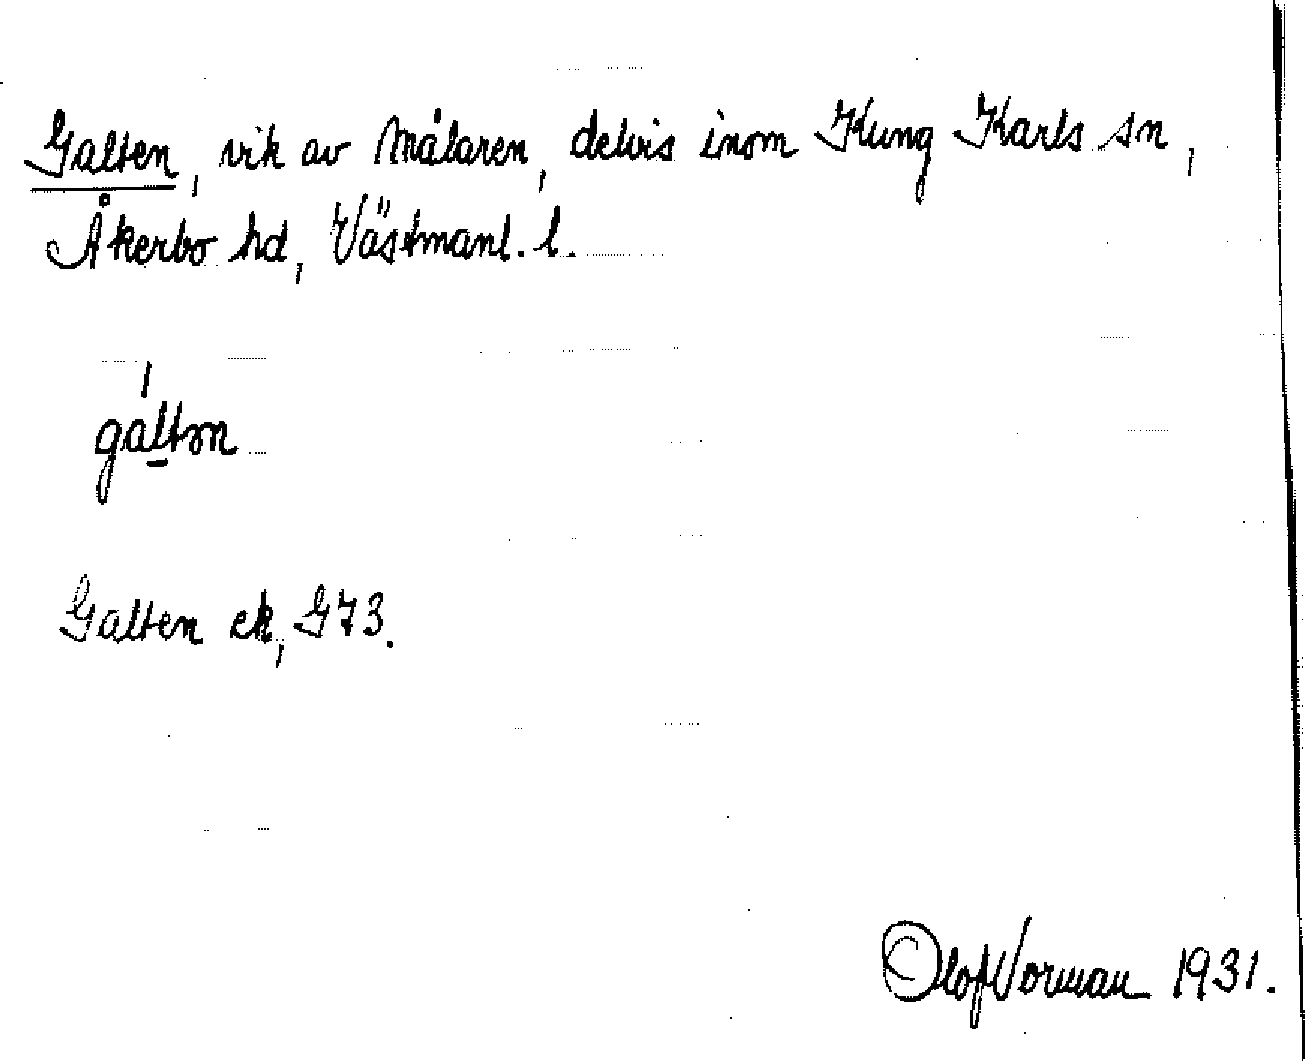 Galten, vik av Mälaren, delvis inom Kung Karls sn,
Åkerbo hd, Västmanl. l.
Galten ek, G73.
Olof Vorman 1931.